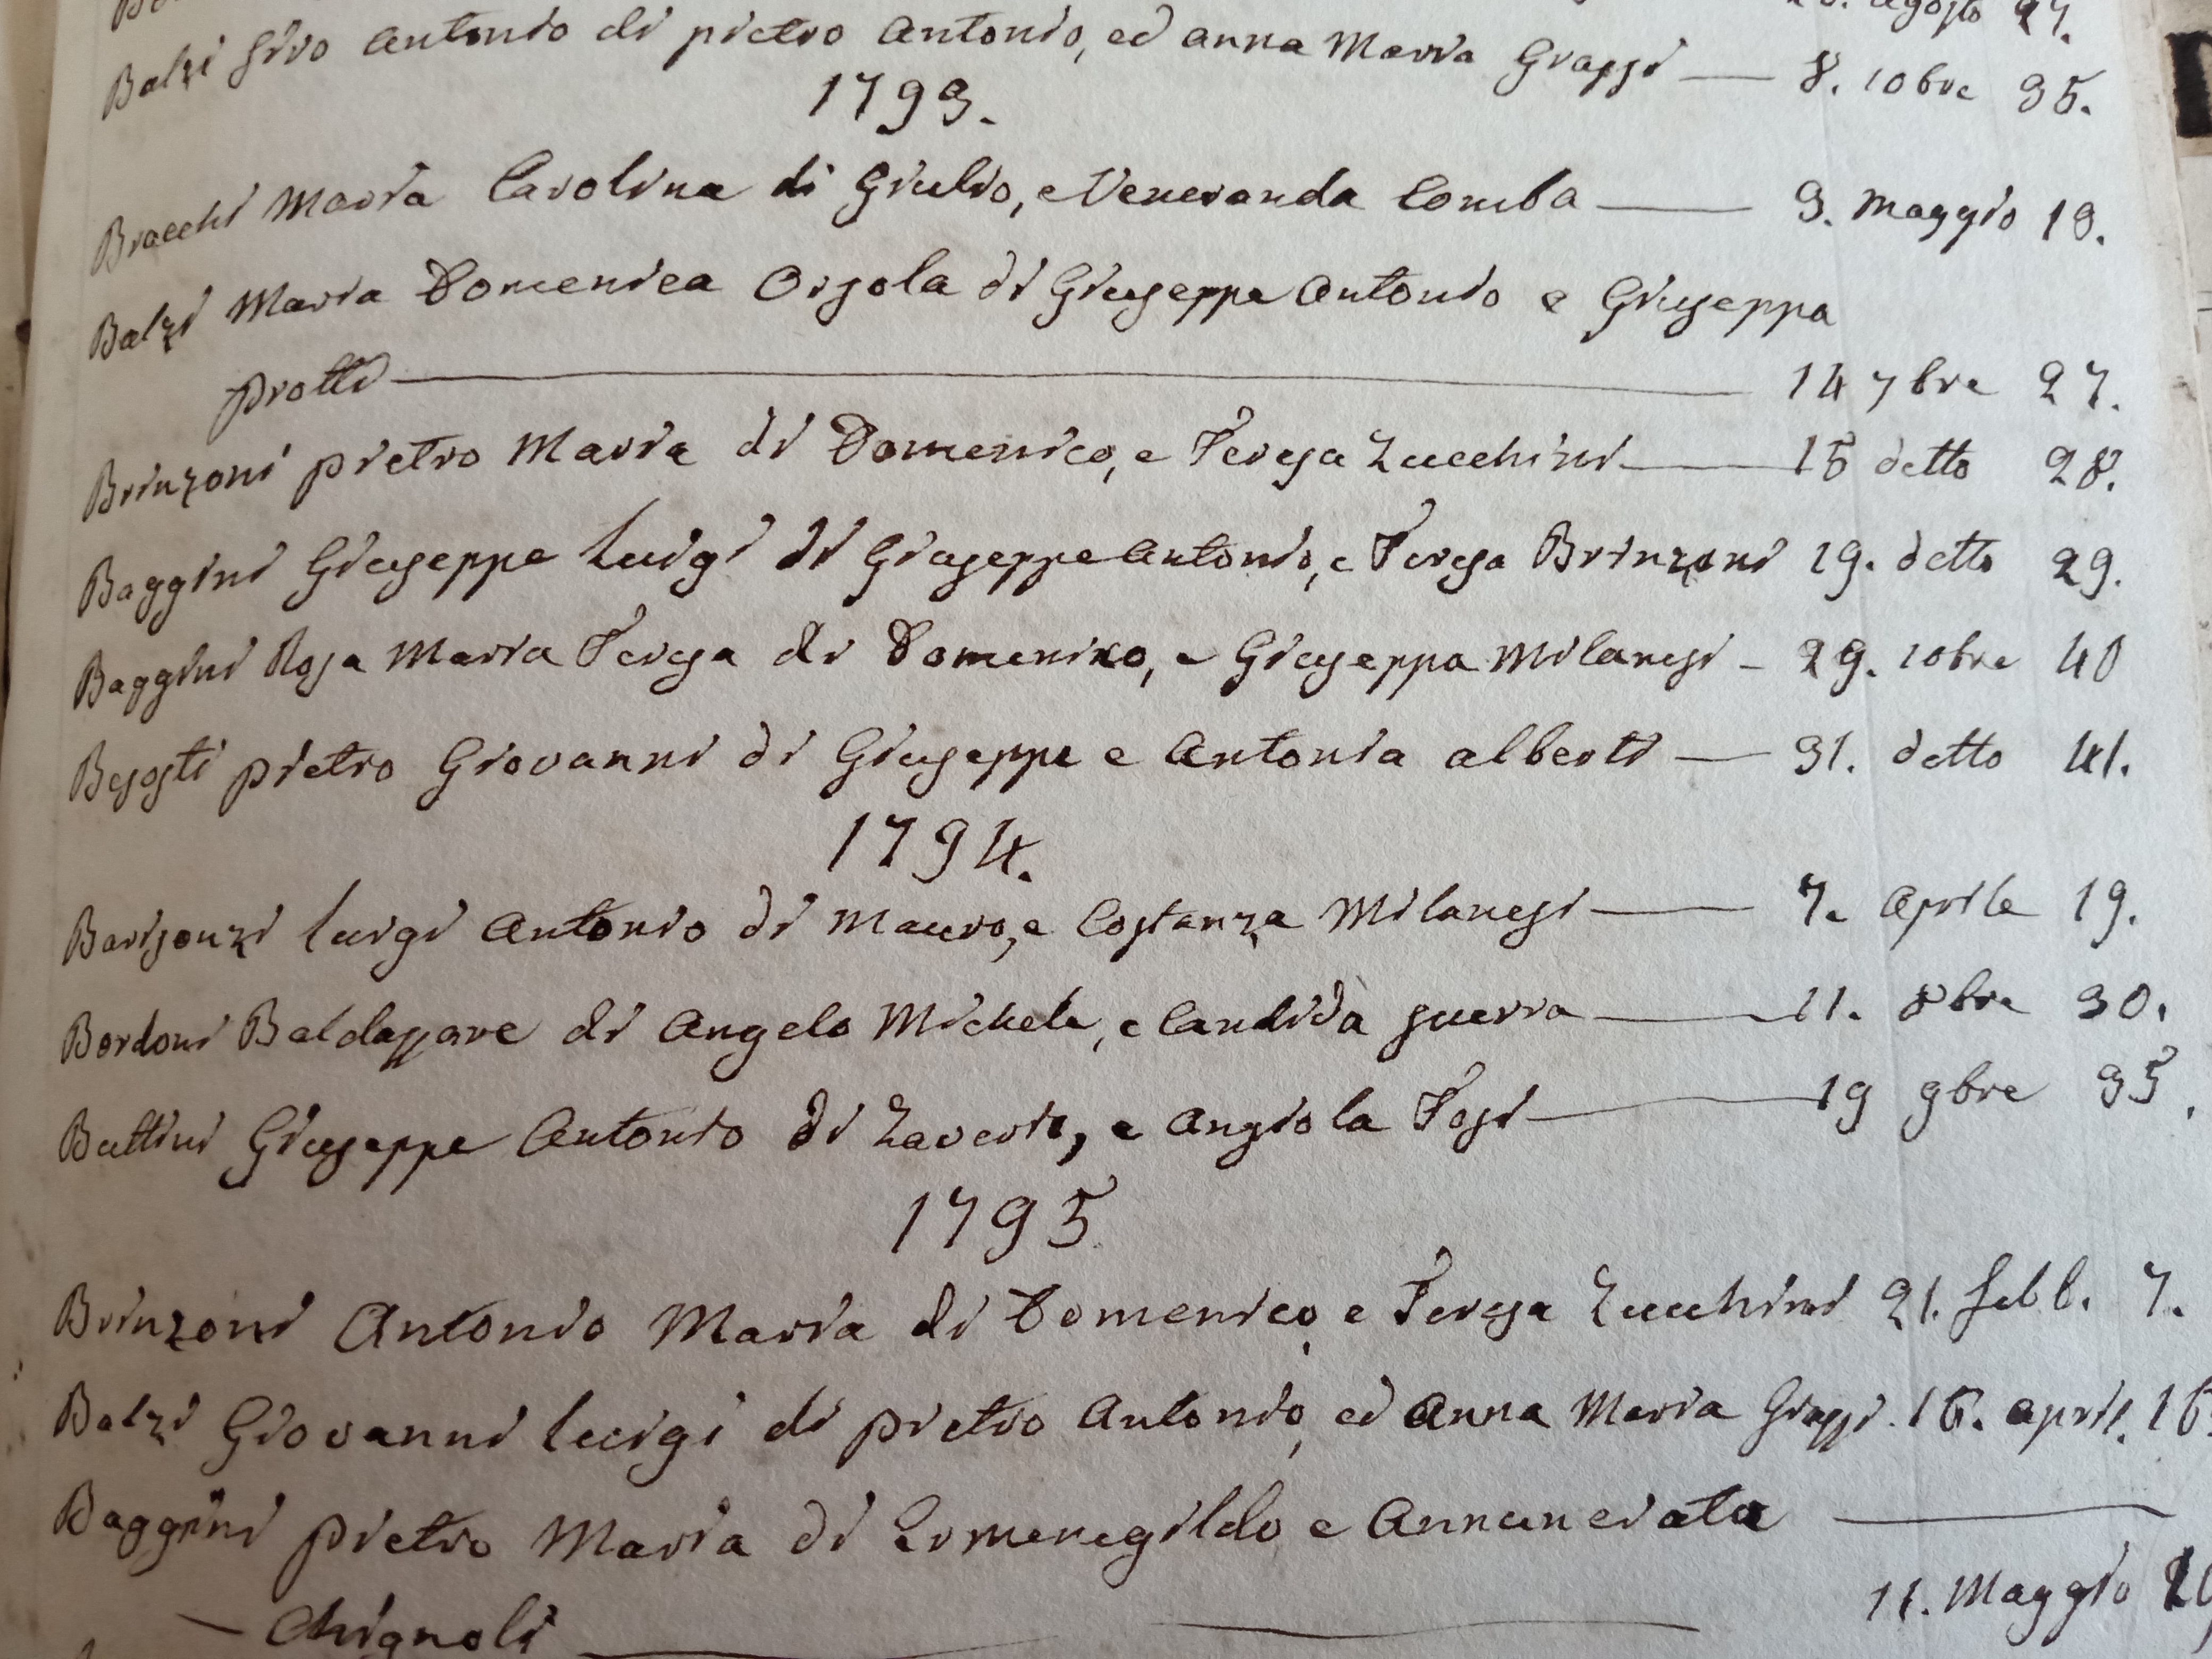 agosto 27.
Balzi Siro Antonio di pietro Antonio, ed anna Maria Grassi — 8. 10bre 35.
1793.
Bracchi Maria Carolina di Giulio, e Veneranda Comba — 3. Maggio 19.
Balzi Maria Domenica Orsola di Giuseppe Antonio e Giuseppa
Protti — 14 7bre 27.
Brinzoni pietro Maria di Domenico, e Teresa Zucchini — 15 detto 28.
Baggini Giuseppe Luigi di Giuseppe Antonio, e Teresa Brinzoni 19. detto 29.
Baggini Rosa Maria Teresa di Domenico, e Giuseppa Milanesi - 29. 10bre 40
Besosti pietro Giovanni di Giuseppe e Antonia alberti — 31. detto 41.
1794.
Barisonzi Luigi Antonio di Mauro, e Costanza Milanesi — 7. Aprile 19.
Bordoni Baldassare di Angelo Michele, e Candida guerra — 11. 8bre 30.
Buttini Giuseppe Antonio di Zaverio, e Angiola Tosi — 19 9bre 35.
1795
Brinzoni Antonio Maria di Domenico, e Teresa Zucchini 21. febb. 7.
Balzi Giovanni Luigi di pietro Antonio, ed Anna Maria Grassi. 16. april. 16.
Baggini pietro Maria di Ermenegildo e Annunciata —
— Chignoli — 11. Maggio